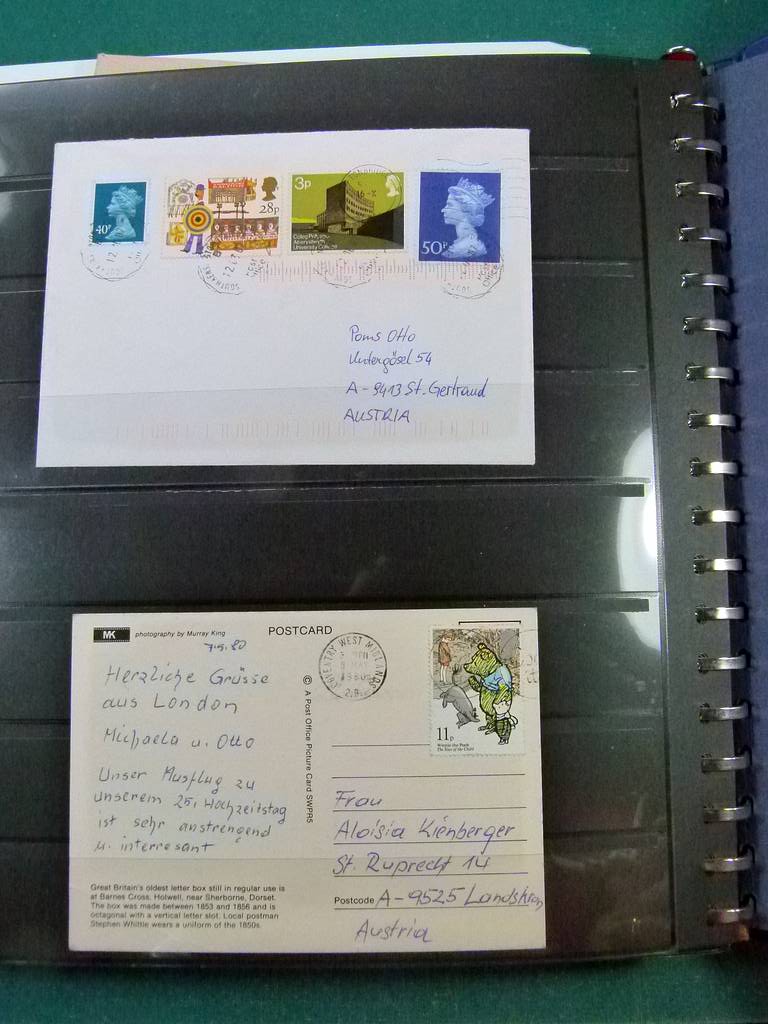 40P
28p
3p
Aberystwyth
University College
50P
Poms Otto
Untergösel 54
A-9413 St. Gertraud
AUSTRIA
MK photography by Murray King
POSTCARD
7.5.80
Herzliche Grüsse
aus London
Michaela u. Otto
Unser Ausflug zu
unserem 25. Hochzeitstag
ist sehr anstrengend
u. interresant
Great Britain's oldest letter box still in regular use is
at Barnes Cross, Holwell, near Sherborne, Dorset.
The box was made between 1853 and 1856 and is
octagonal with a vertical letter slot. Local postman
Stephen Whittle wears a uniform of the 1850s.
© A Post Office Picture Card SWPR5
COVENTRY WEST MIDLANDS
MAY
1980
11p
Winnie-the-Pooh
The Year of the Child
Frau
Aloisia Kienberger
St. Ruprecht 14
Postcode A-9525 Landskron
Austria